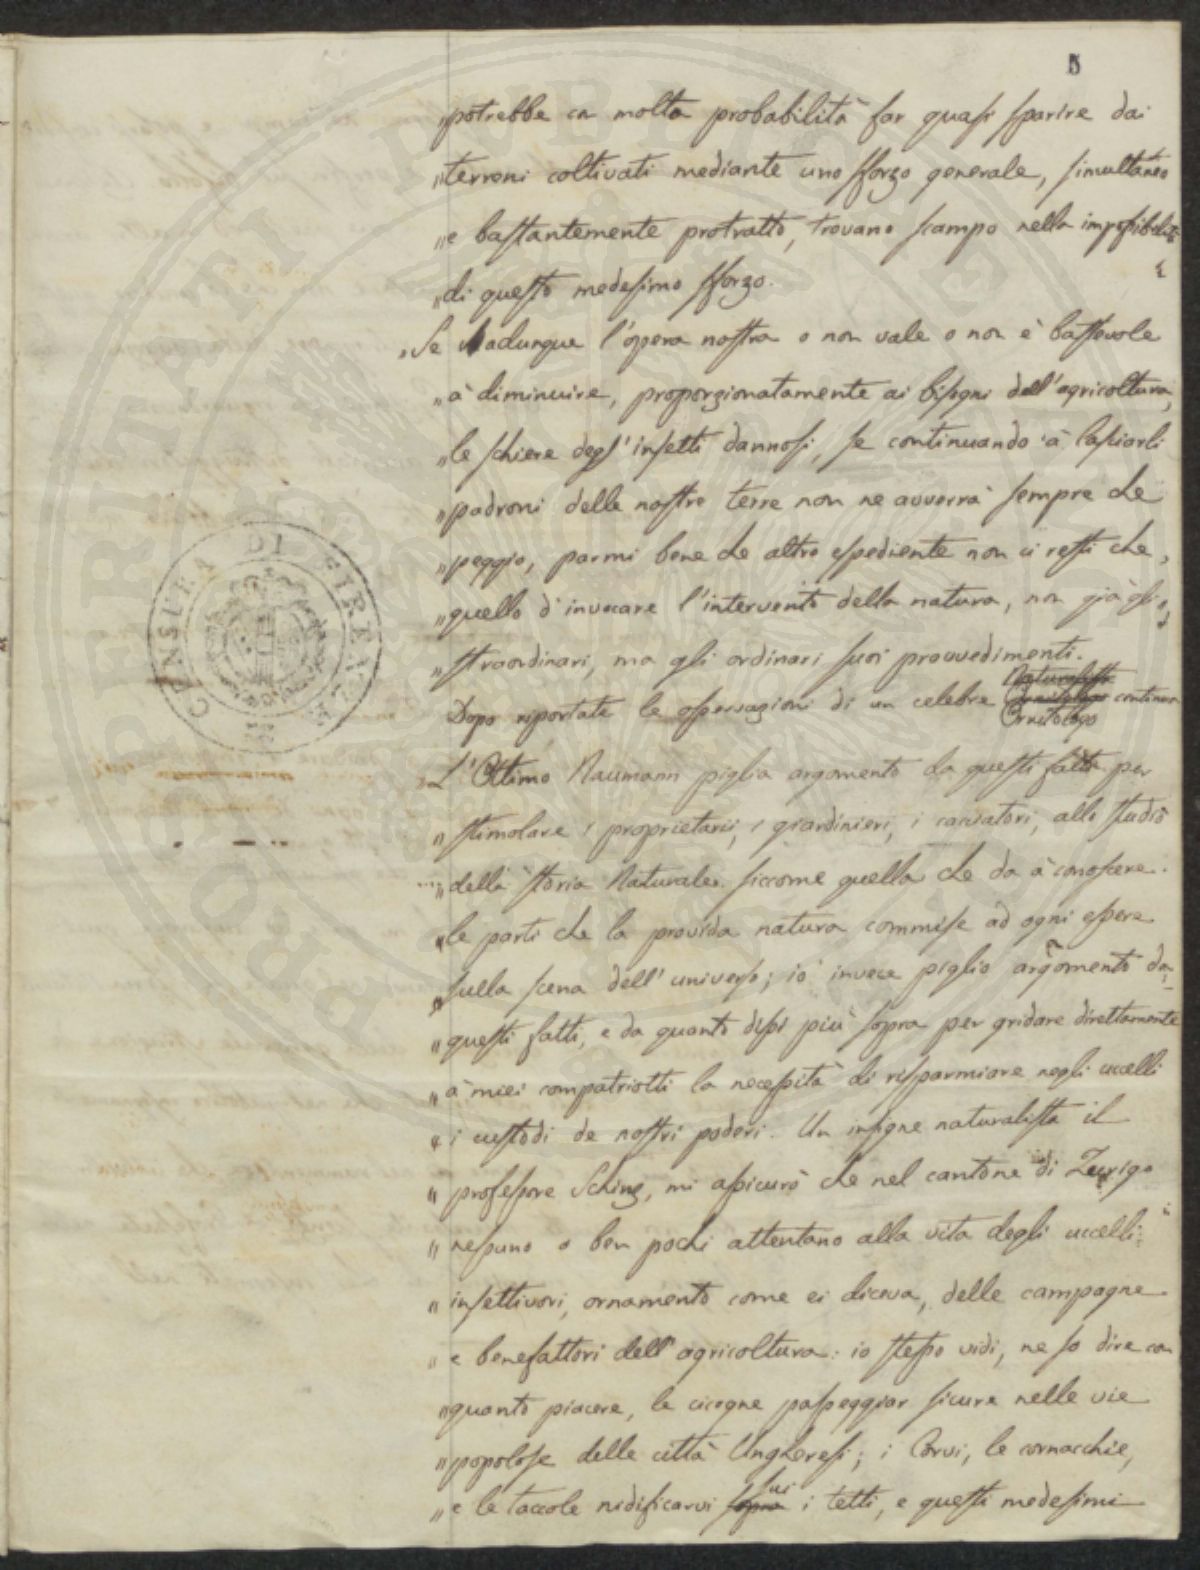 5
„potrebbe con molta probabilità far quasi sparire dai
„terreni coltivati mediante uno sforzo generale, simultaneo
„e bastantemente protratto, trovano scampo nella impossibilità
„di questo medesimo sforzo.
„Se adunque l'opera nostra o non vale o non è bastevole
„à diminuire, proporzionatamente ai bisogni dell'agricoltura,
„le schiere degl'insetti dannosi, se continuando à lasciarli
„padroni delle nostre terre non ne avverrà sempre che
„peggio, parmi bene che altro espediente non ci resti che,
„quello d'invocare l'intervento della natura, non già gli
„straordinari, ma gli ordinari suoi provvedimenti.
Naturalista
Dopo riportate le osservazioni di un celebre Ornitologo continua
Ornitologo
„L'Ottimo Naumann piglia argomento da questi fatti per
„stimolare i proprietarii, i giardinieri, i cacciatori, allo studio
„della storia Naturale siccome quella che da à conoscere
„le parti che la provida natura commise ad ogni essere
„sulla scena dell'universo; io invece piglio argomento da
„questi fatti, e da quanto dissi più sopra per gridare direttamente
„à miei compatriotti la necessità di risparmiare negli uccelli
„i custodi de nostri poderi. Un insigne naturalista il
„professore Schinz, mi assicurò che nel cantone di Zurigo
„nessuno o ben pochi attentano alla vita degli uccelli
„insettivori, ornamento come ei diceva, delle campagne
„e benefattori dell'agricoltura: io stesso vidi, ne so dire con
„quanto piacere, le cicogne passeggiar sicure nelle vie
„popolose delle città Ungheresi; i Corvi, le cornacchie,
sui
„e le taccole nidificarvi sopra i tetti, e questi medesimi
CENSURA DI FIRENZE
PERIZIATI PUBLICE